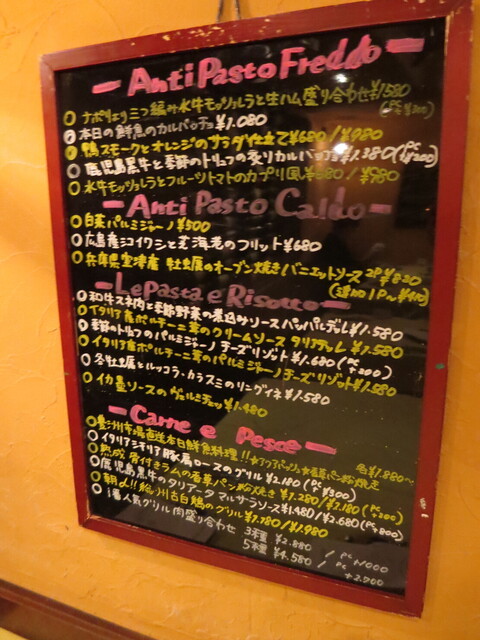 AntiPasto Freddo
ナポリより三つ編み水牛モッツァレラと生ハム盛り合わせ ¥1580
本日の鮮魚のカルパッチョ ¥1.080
鴨スモークとオレンジのサラダ仕立て ¥680/¥980
鹿児島黒牛と季節のトリュフの炙りカルパッチョ ¥1.380(PC+¥200)
水牛モッツァレラとフルーツトマトのカプリ風 / ¥980
Anti Pasto Caldo
白菜パルミジャーノ ¥500
広島産シコイワシと海老のフリット ¥680
兵庫県室津産 牡蠣のオーブン焼きバニェットソース 2P ¥820
(追加1P〜¥410)
Le Pasta e Risotto
和牛スネ肉と季節野菜の煮込みソース パッパルデレ ¥1.580
イタリア産ポルチーニ茸のクリームソース タリアテッレ ¥1.580
季節のトリュフのパルミジャーノチーズリゾット ¥1.680(PC+200)
イタリア産ポルチーニ茸のパルミジャーノチーズリゾット ¥1.580
冬牡蠣とルッコラ・カラスミのリングイネ ¥1.580
イカ墨ソースのヴェルミチェッリ ¥1.480
Carne e Pesce
市場直送本日鮮魚料理!! ☆アクアパッツァ ☆香草パン粉焼き 各¥1.880〜
イタリアシチリア豚肩ロースのグリル ¥2180(PC+¥300)
熟成骨付きラムの香草パン粉焼き ¥1.280/¥2.180(PC+200)
鹿児島黒牛のタリアータ マルサラソース ¥1.480/¥2.680(PC+800)
朝〆!! 古白鶏のグリル ¥1.780/¥1.980
1番人気グリル肉盛り合わせ 3種 ¥2.880 / PC+1000
5種 ¥4.580 / PC+2.700